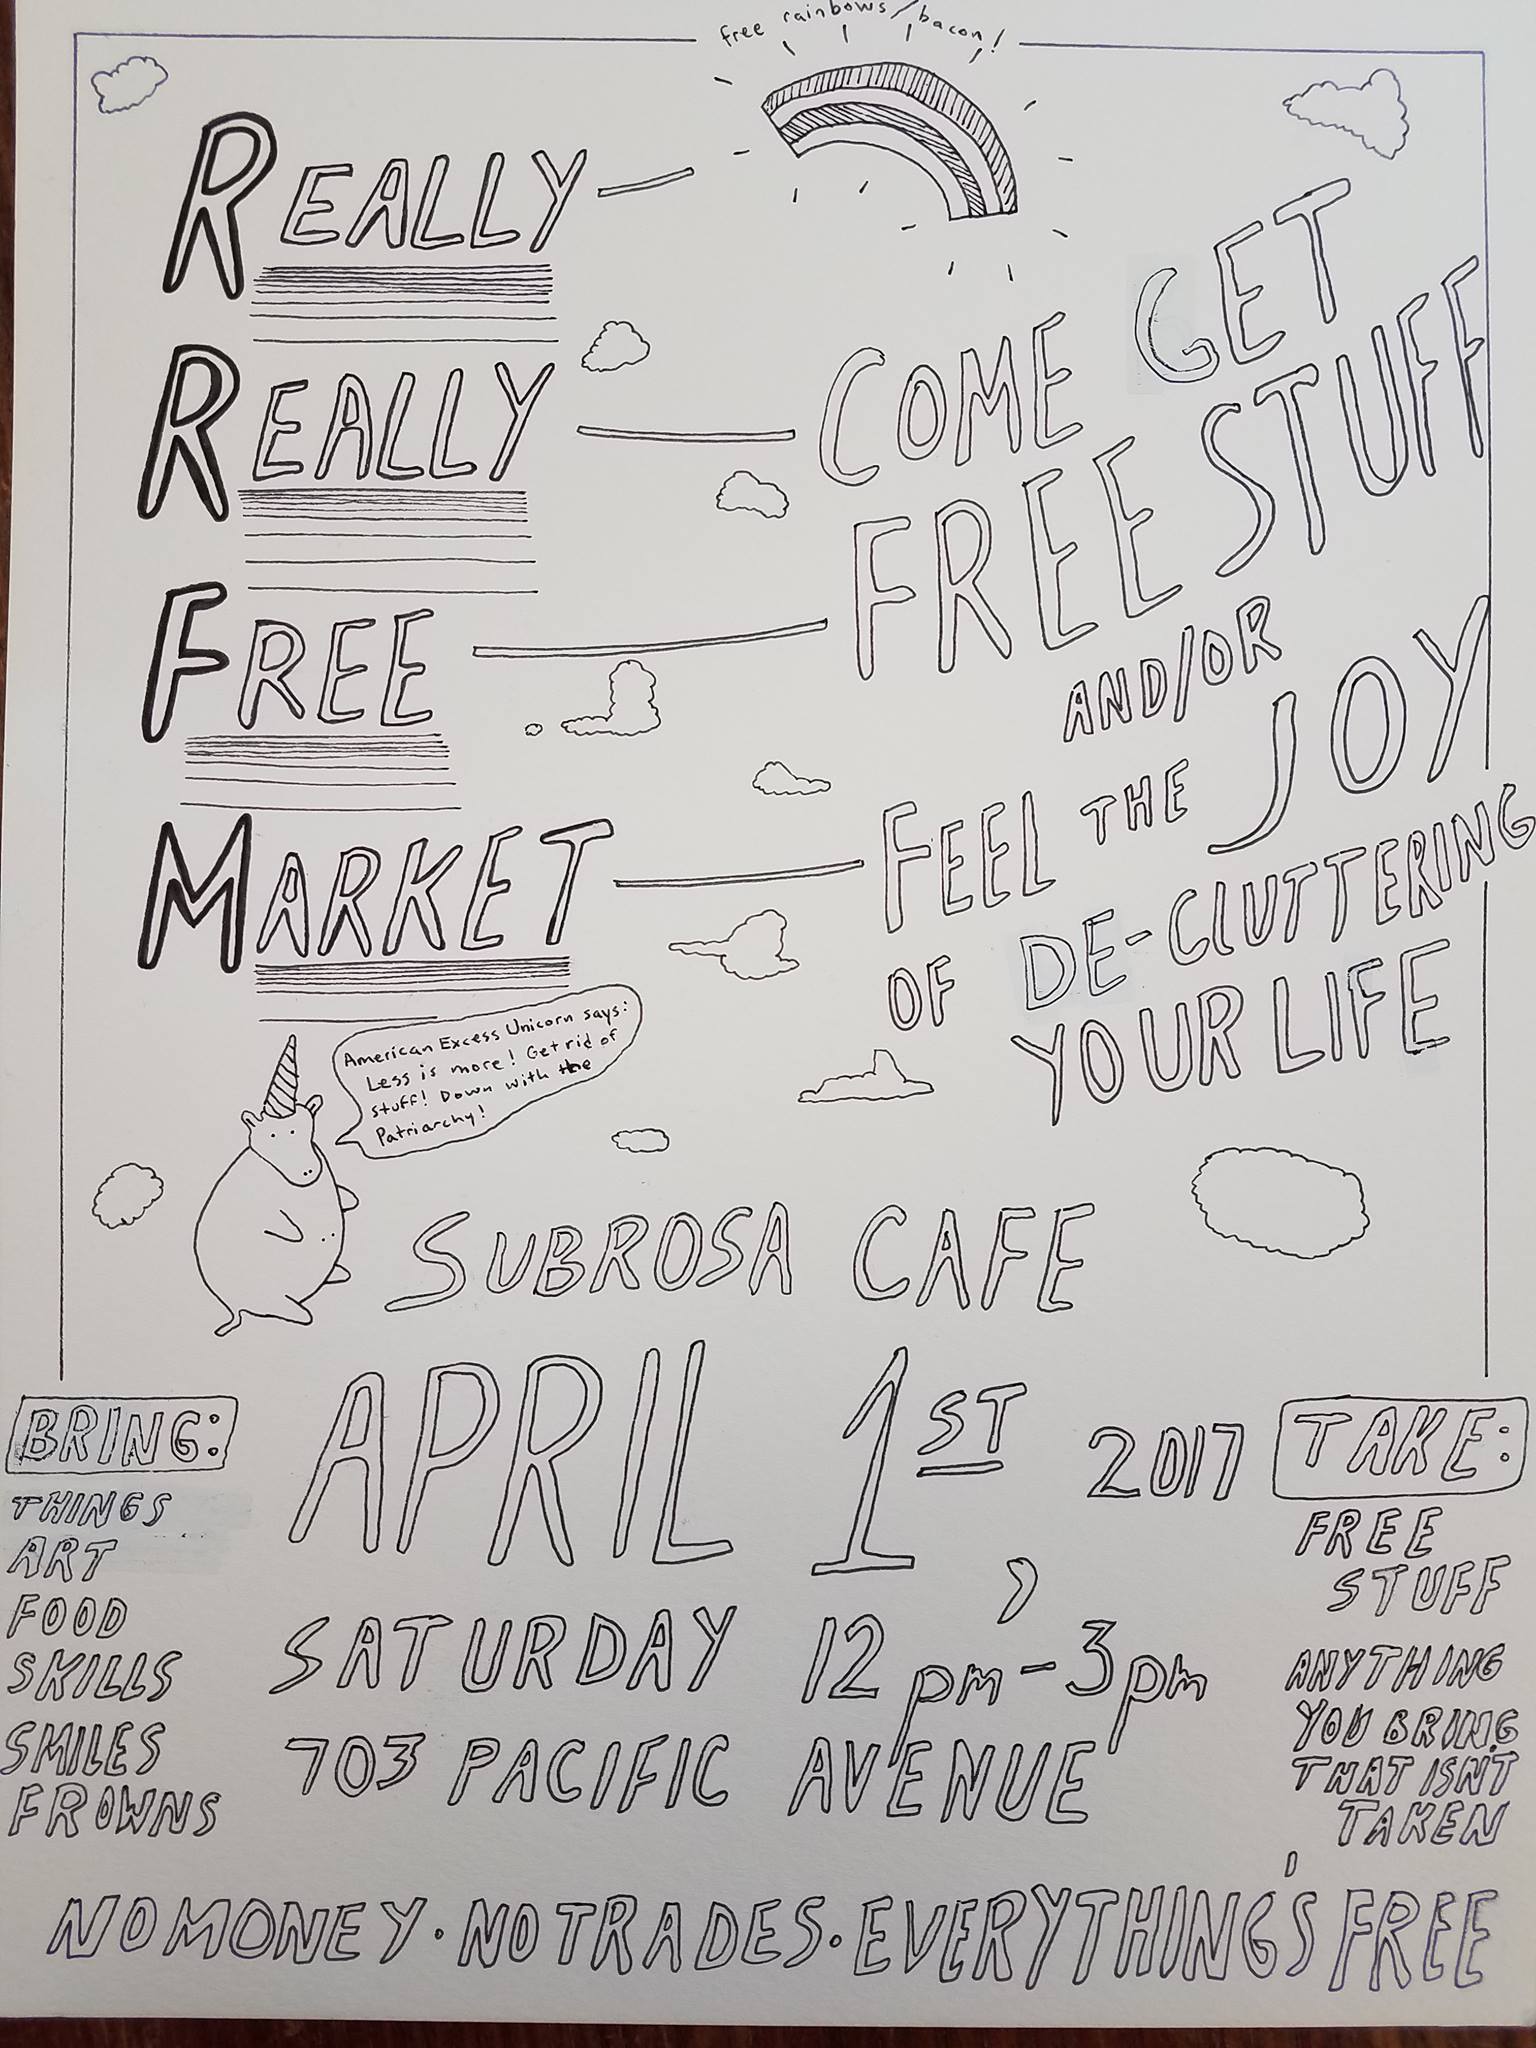 free rainbows/bacon!
REALLY
REALLY
FREE
MARKET
COME GET
FREE STUFF
AND/OR
FEEL THE JOY
OF DE-CLUTTERING
YOUR LIFE
American Excess Unicorn says:
Less is more! Get rid of
stuff! Down with the
Patriarchy!
SUBROSA CAFE
APRIL 1ST, 2017
SATURDAY 12pm-3pm
703 PACIFIC AVENUE
BRING:
THINGS
ART
FOOD
SKILLS
SMILES
FROWNS
TAKE:
FREE
STUFF
ANYTHING
YOU BRING
THAT ISN'T
TAKEN
NO MONEY · NO TRADES · EVERYTHING'S FREE